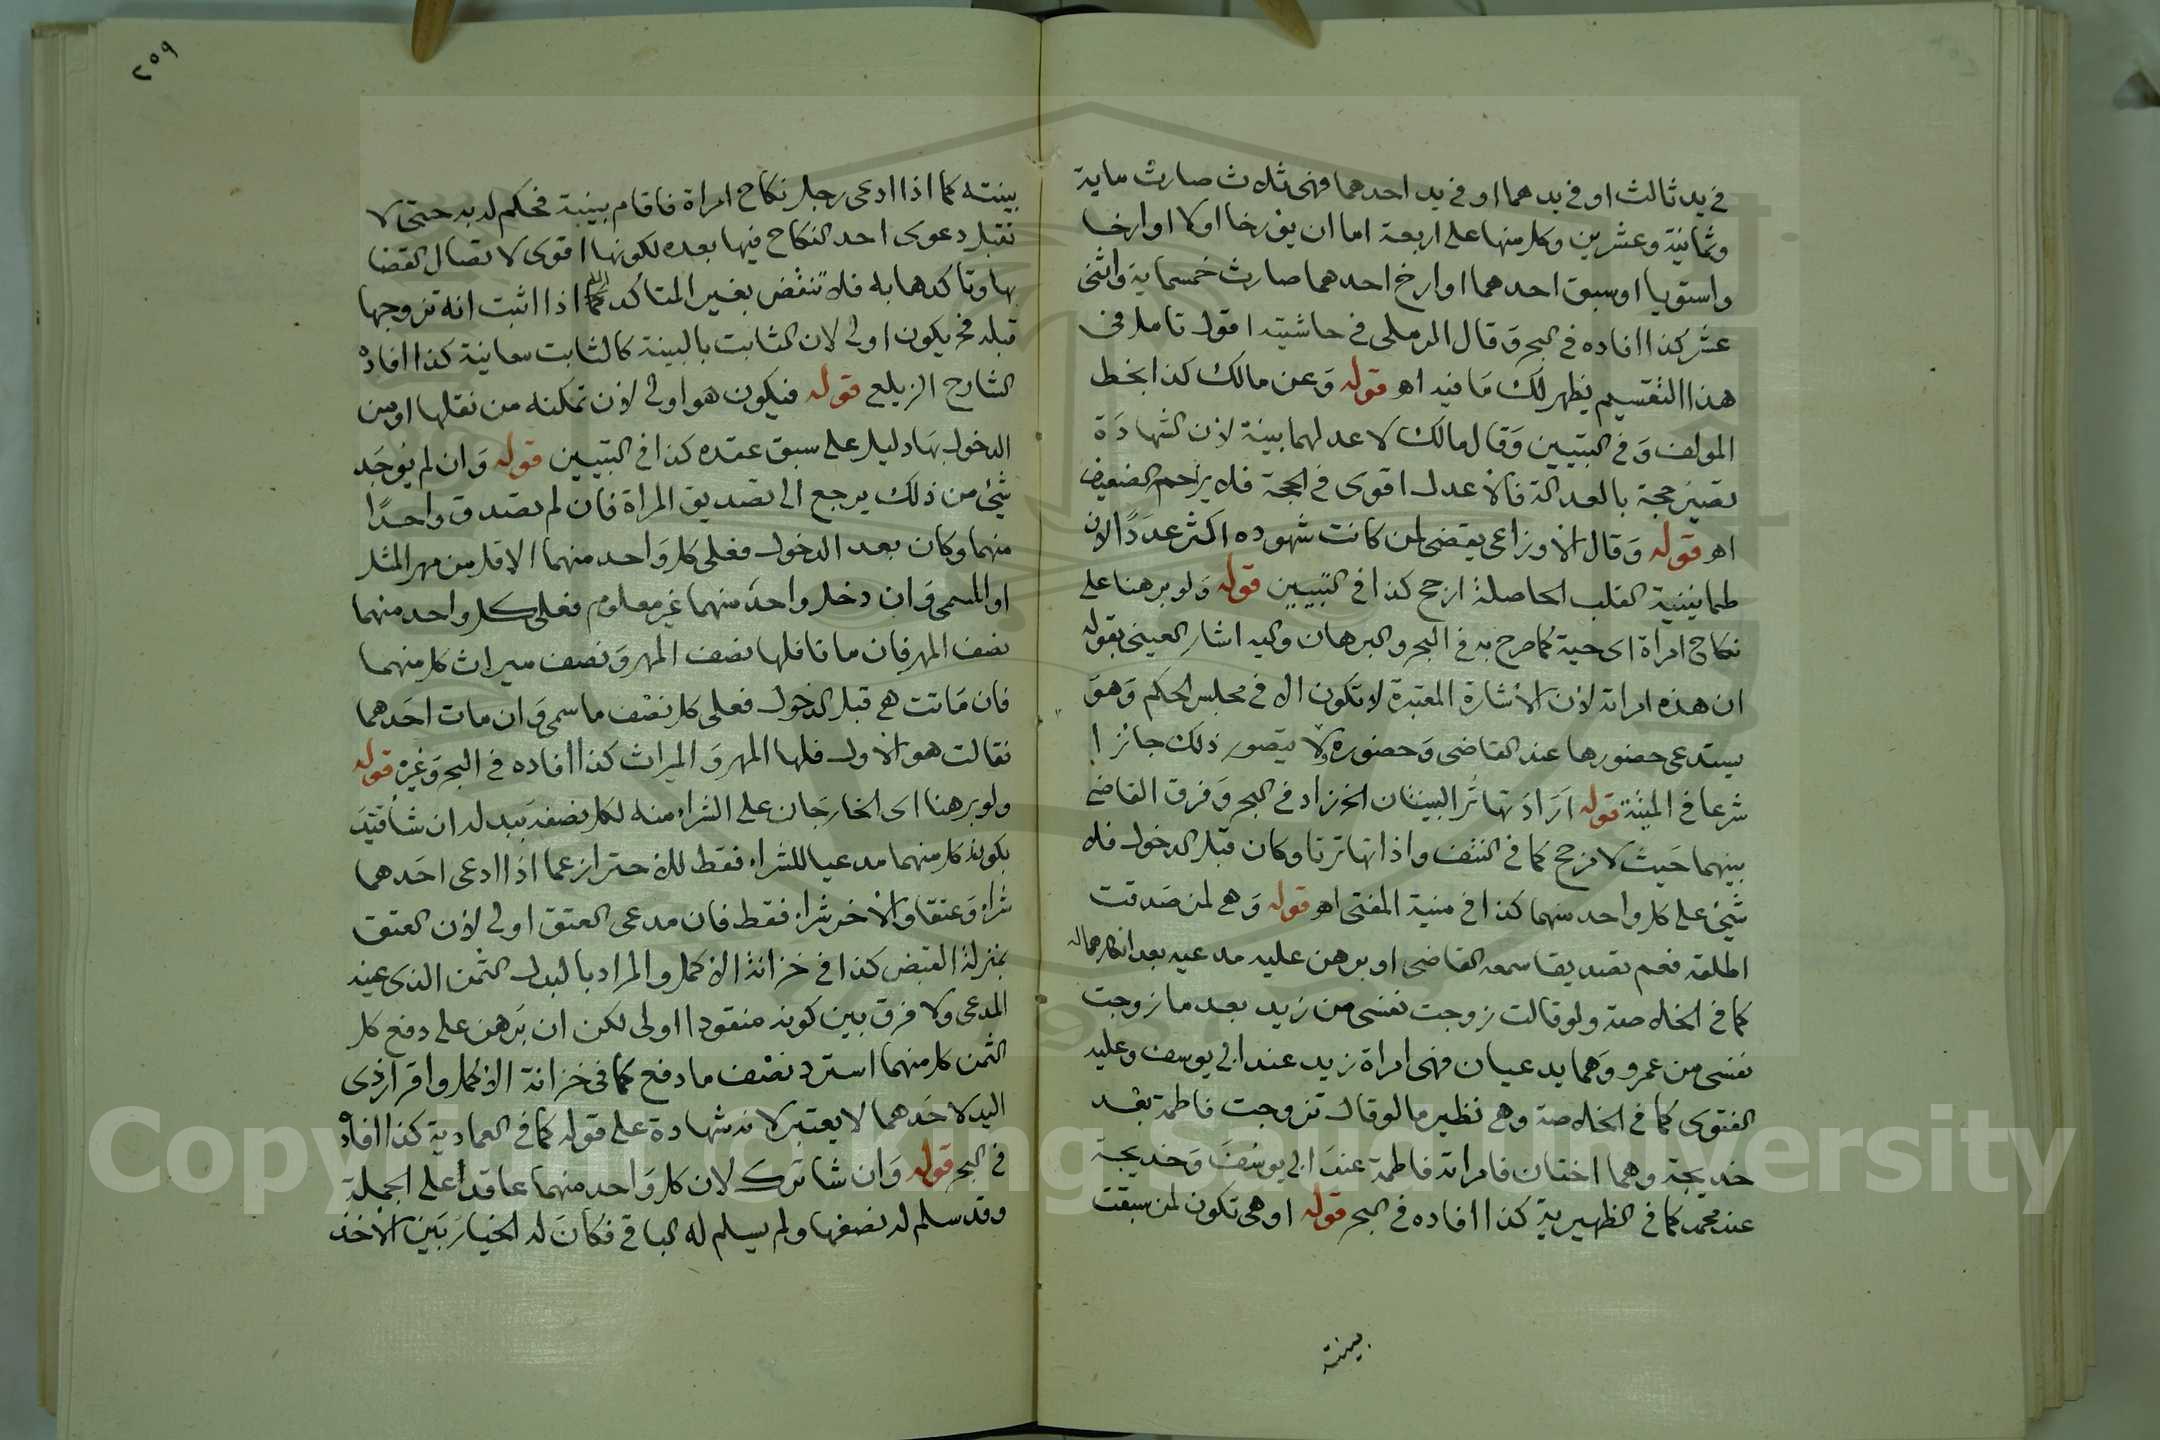 في يد ثالث او في يدهما او في يد احدهما فهي ثلاث صارت ماية
وثمانية وعشرين وكل منها على اربعة اما ان يؤرخا اولا او ارخا
واستويا او سبق احدهما او ارخ احدهما صارت خمسماية واثنى
عشر كذا افاده في البحر وقال الرملي في حاشيته اقول تامل في
هذا التقسيم يظهر لك ما فيه اهـ قوله وعن مالك كذا بخط
المولف وفي التبيين وقال مالك لاعدلهما بينة لان الشهادة
تصير حجة بالعدالة فالاعدل اقوى في الحجة فلا يزاحم الضعيف
اهـ قوله وقال الاوزاعى يقضى لمن كانت شهوده اكثر عددا لان
طمانينية القلب الحاصلة ارجح كذا في التبيين قوله ولو برهنا على
نكاح امراة اى حية كما صرح به في البحر والبرهان واليه اشار العينى بقوله
ان هذه امراته لان الاشارة المعتبرة لا تكون الا في مجلس الحكم وهو
يستدعى حضورها عند القاضى وحضوره ولا يتصور ذلك جائزا
شرعا في الميتة قوله اراد تهاتر البينتان الخ زاد في البحر وفرق القاضى
بينهما حيث لا مرجح كما في النتف واذا تهاترتا وكان قبل الدخول فلا
شيئ على كل واحد منهما كذا في منية المفتى اهـ قوله وهى لمن صدقت
اطلقه فعم تصديقا سمعه القاضى او برهن عليه مدعيه بعد انكارها له
كما في الخلاصة ولو قالت زوجت نفسى من زيد بعد ما زوجت
نفسى من عمرو وهما يدعيان فهى امراة زيد عند ابى يوسف وعليه
الفتوى كما في الخلاصة وهى نظير ما لو قال تزوجت فاطمة بعد
خديجة وهما اختان فامراته فاطمة عند ابى يوسف وخديجة
عند محمد كما في الظهيرية كذا افاده في البحر قوله او هى تكون لمن سبقت
بينته
٢٥٩
بينته كما اذا ادعى رجل نكاح امراة فاقام بينية فحكم له به حتى لا
تقبل دعوى احد النكاح فيها بعده لكونها اقوى لاتصال القضا
بها وتاكدها به فلا تنقض بغير المتاكد كما اذا اثبت انه تزوجها
قبله فح يكون اولى لان الثابت بالبينة كالثابت معاينة كذا افاده
الشارح الزيلعى قوله فيكون هو اولى لان تمكنه من نقلها او من
الدخول بها دليل على سبق عقده كذا في التبيين قوله وان لم يوجد
شيئ من ذلك يرجع الى تصديق المراة فان لم تصدق واحدا
منهما وكان بعد الدخول فعلى كل واحد منهما الاقل من مهر المثل
او المسمى وان دخل واحد منهما غير معلوم فعلى كل واحد منهما
نصف المهر فان ماتا فلها نصف المهر ونصف ميراث كل منهما
فان ماتت هى قبل الدخول فعلى كل نصف ما سمى وان مات احدهما
فقالت هو الاول فلها المهر والميراث كذا افاده في البحر وغيره قوله
ولو برهنا اى الخارجان على الشراء منه لكل نصفه ببدله ان شا قيد
بكونه كل منهما مدعيا للشراء فقط للاحتراز عما اذا ادعى احدهما
شراء وعتقا والاخر شراء فقط فان مدعى العتق اولى لان العتق
بمنزلة القبض كذا في خزانة الاكمل والمراد بالبدل الثمن الذى عينه
المدعى ولا فرق بين كونه منقودا اولى لكن ان برهن على دفع كل
الثمن كل منهما استرد نصف ما دفع كما في خزانة الاكمل واقرار ذى
اليد لاحدهما لا يعتبر لانه شهادة على قوله كما في العمادية كذا افاده
في البحر قوله وان شا ترك لان كل واحد منهما عاقدا على الجملة
وقد سلم له نصفها ولم يسلم له الباقى فكان له الخيار بين الاخذ
Copyright © King Saud University